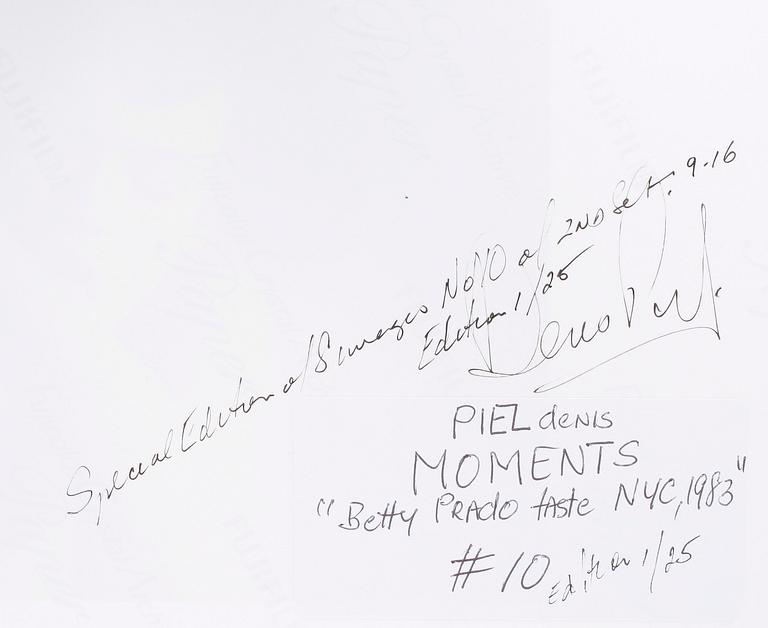 Special Edition of 8 images No 10 of 2ND Set. 9-16
Edition 1/25
Denis Piel
PIEL denis
MOMENTS
"Betty PRADO taste NYC, 1983"
#10 Edition 1/25
FUJIFILM
Crystal Archive
Paper